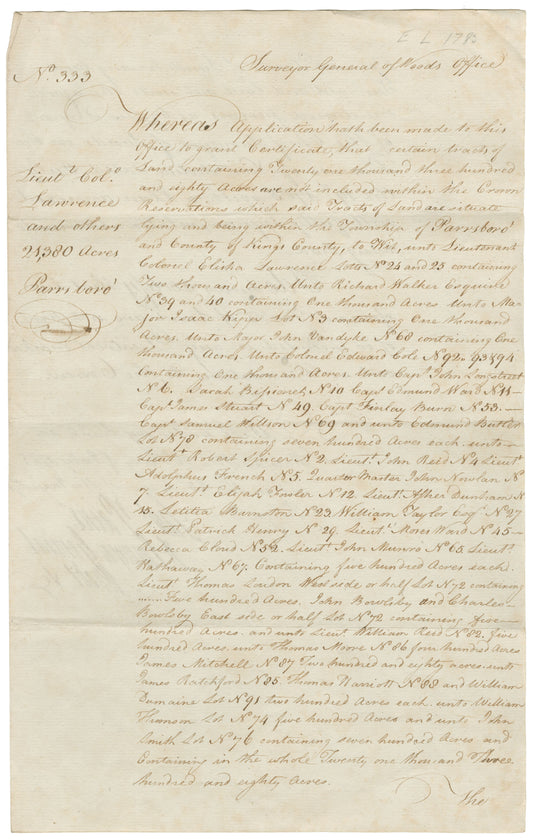 E L 1783
Surveyor General of Woods Office
No. 333
Whereas Application hath been made to this
Office to grant Certificate, that certain tracts of
Land containing Twenty one thousand three hundred
and eighty Acres are not included within the Crown
Reservations which said Tracts of Land are situate
lying and being within the Township of Parrsboro'
and County of Kings County, to Wit, unto Lieutenant
Colonel Elisha Lawrence Lotts No 24 and 25 containing
Two thousand Acres. Unto Richard Walker Esquire
No 39 and 40 containing One thousand Acres Unto Ma-
jor Isaac Kipp Lot No 3 containing One Thousand
Acres. Unto Major John Vandyke No 68 containing One
thousand Acres Unto Colonel Edward Cole No 92. 93 & 94
Containing One thousand Acres. Unto Capt. John Longstreet
No 6. Sarah No 10 Capt Edmund Ward No 11
Capt James Stuart No 49. Capt Finlay Burn No 53.
Capt Samuel Willson No 69 and unto Edmund Butler
Lot No 78 containing seven hundred Acres each. unto
Lieut. Robert Spicer No 2. Lieut. John Reed No 4 Lieut
Adolphus French No 5. Quarter Master John Nowlan No
7. Lieut Elijah Fowler No 12 Lieut. Asher Dunham N
15. Letitia Barnston No 23 William Taylor Esqr No 27
Lieut. Patrick Henry No 29. Lieut. Moses Ward No 45
Rebecca Cloud No 52. Lieut. John Munro No 65. Lieut.
Hathaway No 67. Containing five hundred Acres each.
Lieut Thomas Loudon West side or half Lot No 72 containing
Five hundred Acres. John Bowlsby and Charles
Bowlsby East side or half Lot No 72 containing five
hundred Acres. and unto Lieut. William Reed No 82. five
hundred Acres. unto Thomas Moore No 86 four hundred Acres
James Mitchell No 87 Two hundred and eighty acres. unto
James Ratchford No 85. Thomas Warriott No 88 and William
Dumaine Lot No 91 two hundred Acres each. unto William
Thomson Lot No 74 five hundred Acres and unto John
Smith Lot No 76 containing seven hundred Acres. and
Containing in the whole Twenty one thousand Three
hundred and eighty Acres.
The
Lieut. Colo.
Lawrence
and others
21,380 Acres
Parrsboro'